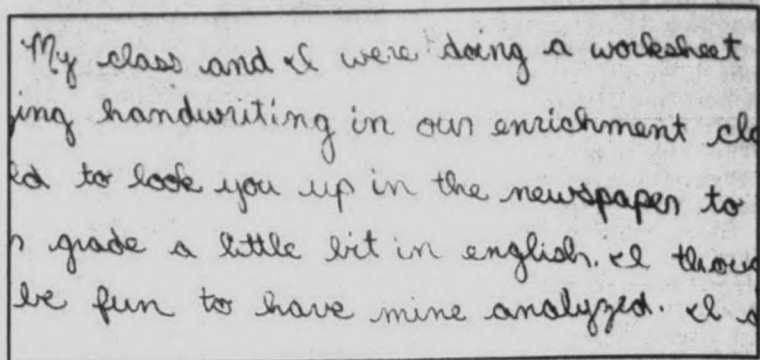 My class and I were doing a worksheet
ing handwriting in our enrichment cla
ed to look you up in the newspaper to
grade a little bit in english. I thoug
be fun to have mine analyzed. I